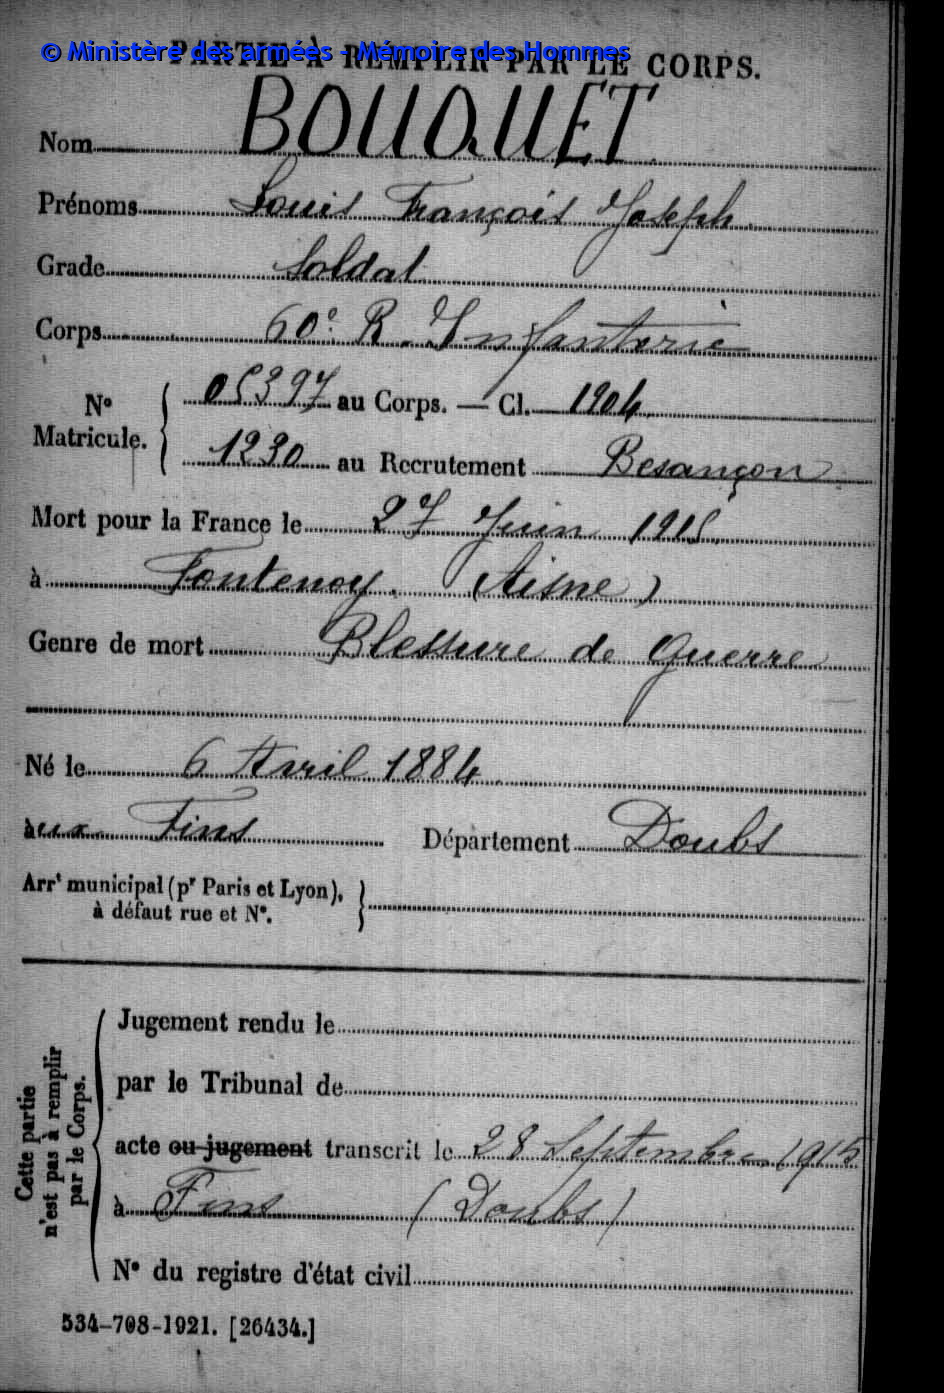 © Ministère des armées - Mémoire des Hommes
PARTIE À REMPLIR PAR LE CORPS.
Nom BOUQUET
Prénoms Louis François Joseph
Grade Soldat
Corps 60e R. Infanterie
N° Matricule. { 05397 au Corps. — Cl. 1904
1230 au Recrutement Besançon
Mort pour la France le 27 Juin 1915
à Fontenoy. (Aisne)
Genre de mort Blessure de Guerre
Né le 6 Avril 1884
aux Fins Département Doubs
Arrt municipal (pr Paris et Lyon),
à défaut rue et N°.
Cette partie
n'est pas à remplir
par le Corps.
Jugement rendu le
par le Tribunal de
acte ou jugement transcrit le 28 Septembre 1915
à Fins (Doubs)
N° du registre d'état civil
534-708-1921. [26434.]